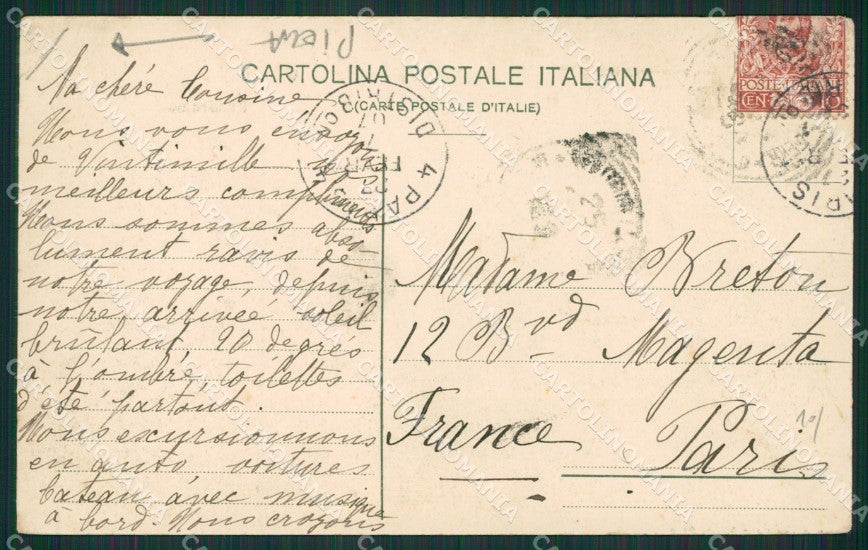 Piega
CARTOLINA POSTALE ITALIANA
(CARTE POSTALE D'ITALIE)
Ma chère Cousine
Nous vous envoy
de Vintimille nos
meilleurs compliments
Nous sommes abso
lument ravis de
notre voyage, depuis
notre arriveé soleil
brûlant 20 degrés
à l'ombre, toilettes
d'été partout.
Nous excursionnons
en auto voitures
bateau avec musique
à bord. Nous croyons
Madame Breton
12 Bvd Magenta
Paris
France
POSTE
CENT
PARIS
DISTRIB
4 PARIS 4
FEVR
07
CARTOLINOMANIA